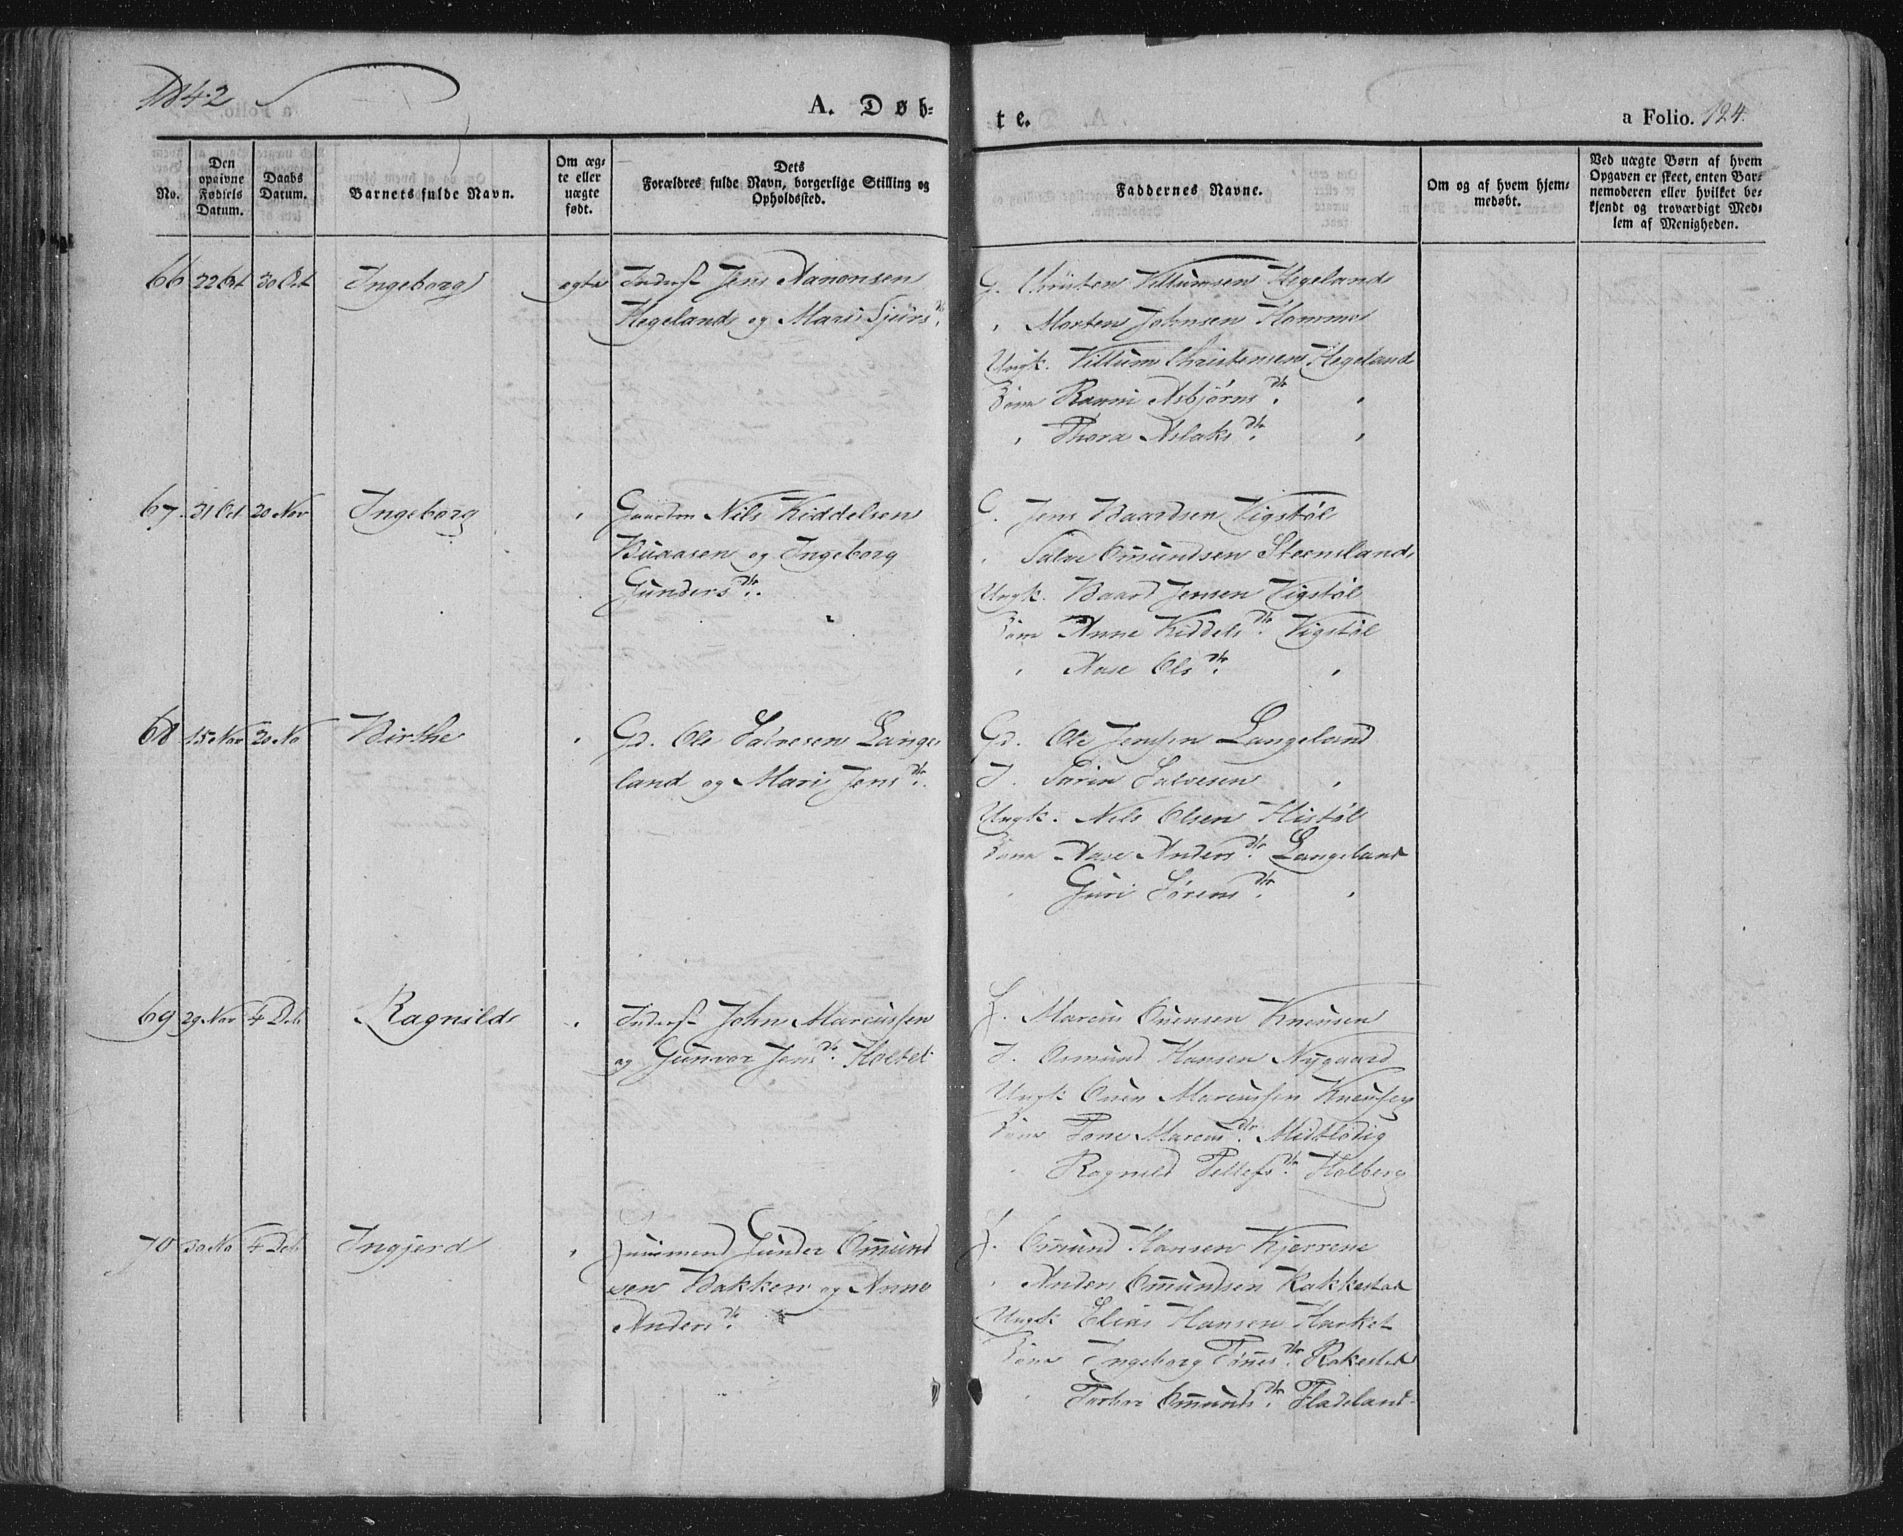 1842
A. Døb-
te.
a Folio. 124.
No.
Den opgivne Fødsels Datum.
Daabs Datum.
Barnets fulde Navn.
Om æg-
te eller
uægte
født.
Dets
Forældres fulde Navn, borgerlige Stilling og
Opholdssted.
Faddernes Navne.
Om og af hvem hjem-
medøbt.
Ved uægte Børn af hvem
Opgaven er skeet, enten Bar-
nemoderen eller hvilket be-
kjendt og troværdigt Med-
lem af Menigheden.
66 22 Oct 30 Oct Ingeborg ægte Inders Jens Aanonsen
Hegeland og Mari Sjurs dtr.
G. Christen Villumsen Hegeland
" Morten Johnsen Homme
Ungk. Villum Christensen Hegeland
Pige Ranni Asbjørns dtr. "
" Thora Aslaks dtr. "
67. 21 Oct 20 Nov Ingeborg " Gaardm Nils Kiddelsen
Buaasen og Ingeborg
Gunders dtr.
G. Jens Baardsen Vigstøl
" Salve Omundsen Steensland
Ungk. Baard Jensen Vigstøl
Anne Kiddels dtr. Vigstøl
" Aase Ols dtr. "
68 15 Nov 20 No Birthe " Gd. Ole Salvesen Lange-
land og Mari Jens dtr.
Gd. Ole Jenssen Langeland
I. Sørin Salvesen "
Ungk. Nils Olsen Histøl
Aase Anders dtr. Langeland
" Guri Sørens dtr. "
69 29 Nov 4 Deb Ragnild " Inders John Marcussen
og Gunvor Jens dtr. Holtet
Marcus Ouensen Kneusen
I. Osmund Hansen Nygaard
Ungk Ouen Marcussen
Tone Marcus dtr. Midtlødig
" Ragnild Tellefs dtr. Holberg
70 30 No 4 Deb Ingjerd " Gunder Omund
sen Bakken og Anne
Anders dtr.
Omund Hansen Kjerrene
" Anders Omundsen Rakkestad
Ungk Elias Hansen Harket
Ingeborg Tønes dtr. Rakestad
" Torbor Omunds dtr. Fladeland